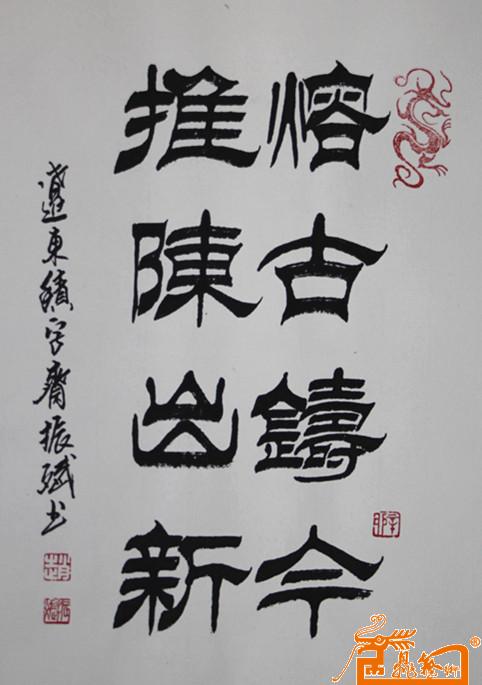 熔古鑄今
推陳出新
遼東積字齋振斌書